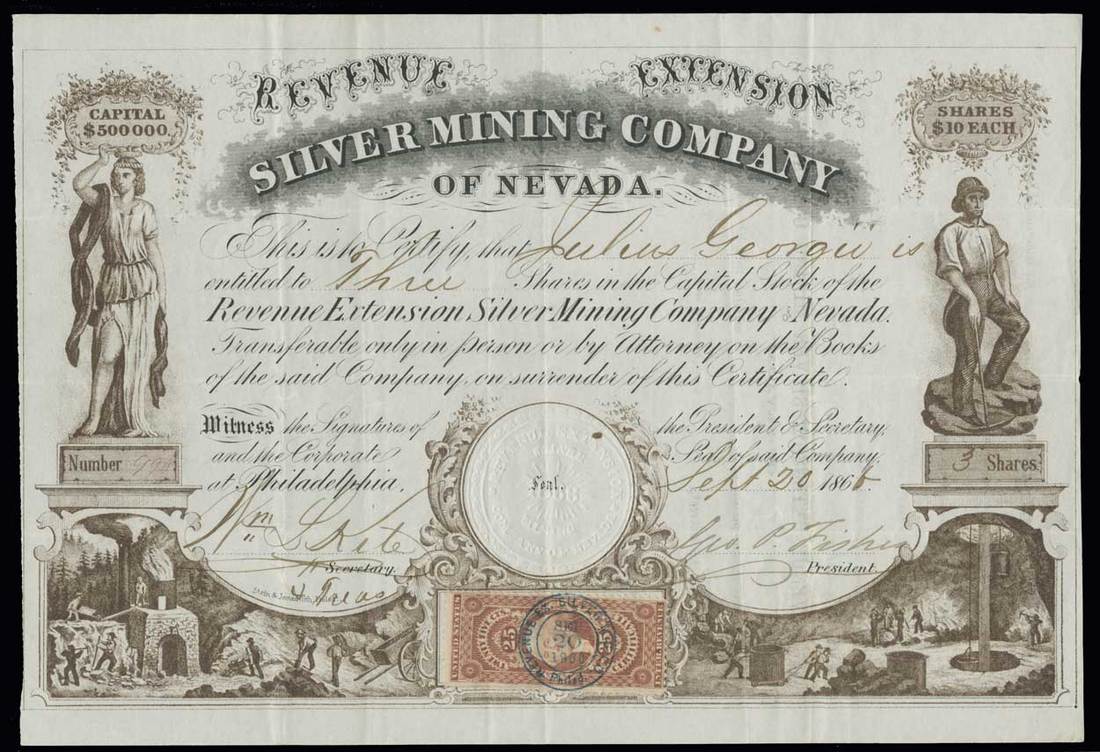 REVENUE EXTENSION
CAPITAL
$500000.
SHARES
$10 EACH
SILVER MINING COMPANY
OF NEVADA.
This is to Certify, that Julius Georgii is
entitled to Three Shares in the Capital Stock of the
Revenue Extension Silver Mining Company of Nevada.
Transferable only in person or by Attorney on the Books
of the said Company, on surrender of this Certificate.
Witness the Signatures of the President & Secretary,
and the Corporate Seal of said Company,
at Philadelphia, Sept 20 1866
Number
3 Shares
Seal.
Wm S Kite
Secretary
& Treas
Geo. P. Fisher
President
Stein & Jones
UNITED STATES
25 25
SEP
20
1866
Philad.